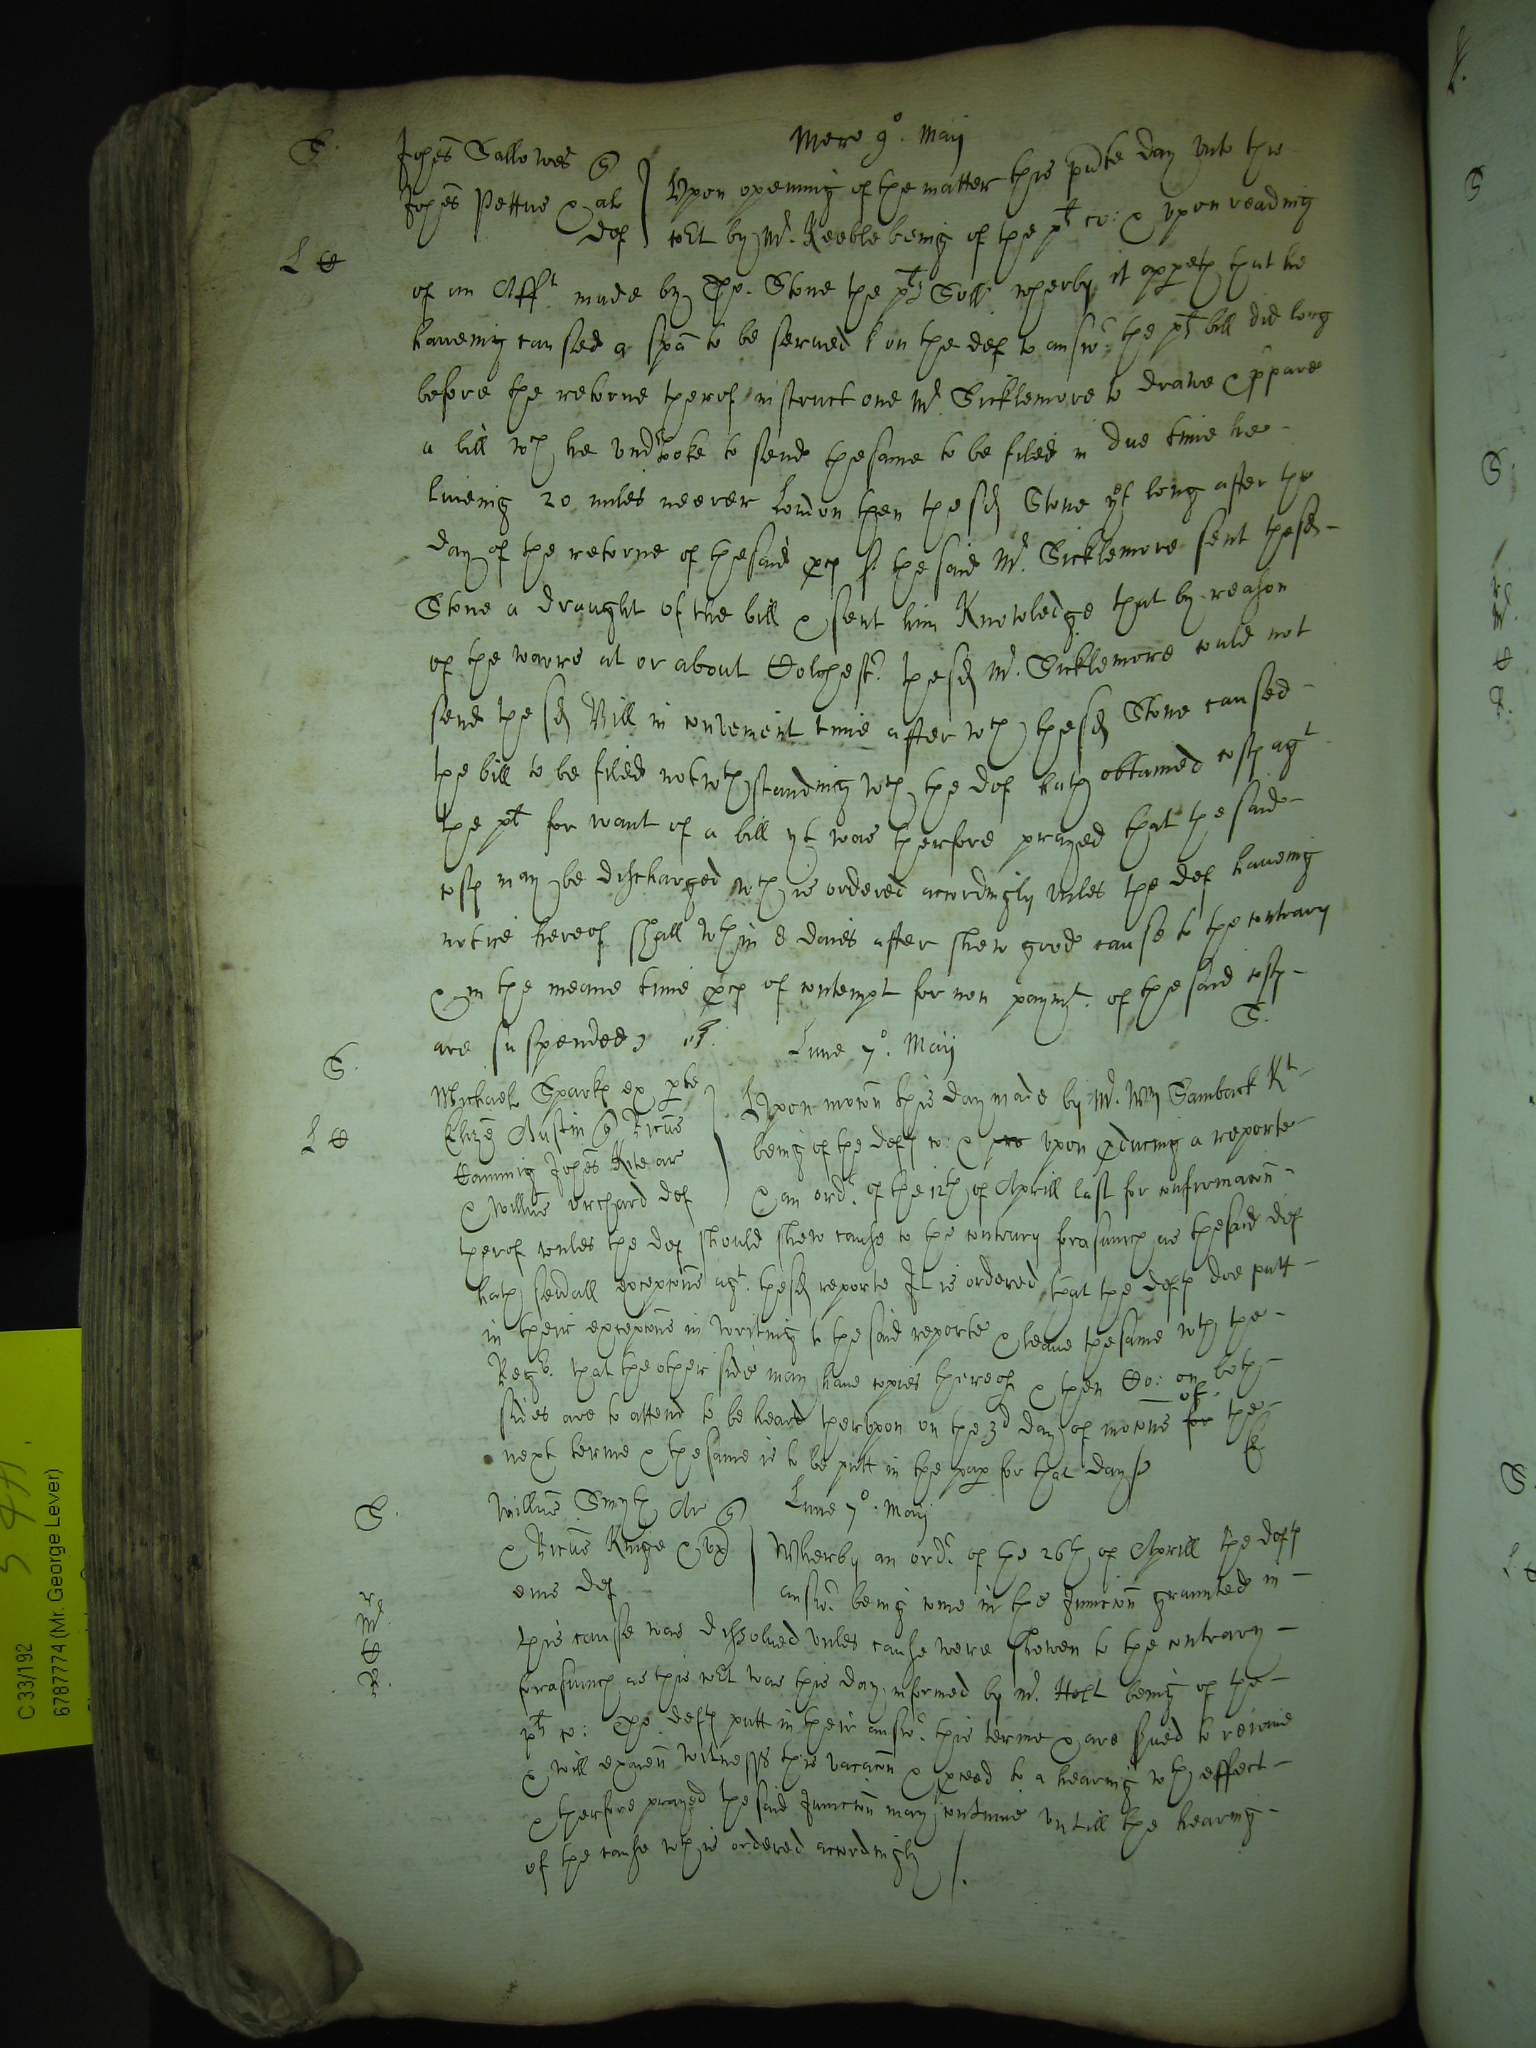 Mere 9o. Maij
S. Johes Sallowes q
Johes Pettus & al def
Vpon openinng of the matter this pnte day vnto this
L C Court by Mr. Keeble being of the plt co: & vpon reading
of an Afft made by Tho. Stone the plts Sollr wherby it appeth that he
haveing caused a spa to be served on the def to answr. the plt bill did long
before the retorne therof instruct one Mr Sicklemore to drawe & ppare
a bill wch he vndrtooke to send the same to be filed in due time he
liveing 20 miles neerer London then the sd Stone yet long after the
day of the retorne of the said pces the said Mr. Sicklemore sent the sd
Stone a draught of the bill & sent him Knowledge that by reason
of the warre at or about Colchestr. the sd Mr. Sicklemore could not
send the sd Bill in convenient time after wch the sd Stone caused
the bill to be filed notwthstanding wch the def hath obtained costs agt
the plt for want of a bill yt was therfore prayed that the said
costs may be discharged wch is ordered accordingly vnles the def haveing
notice hereof shall wthin 8 daies after shew good cause to the contrary
& in the meane time pces of contempt for non paymt. of the said costs
are suspended
S.
Lune 7o. Maij
S.
Michael Sparks ex pte
Eliz Austin q Ricus
Canning Johes Kite ar
& Willus Orchard def
L C
Vpon mocon this day made by Mr. Wm Samback Kt
being of the defts co: & vpon pducing a reporte
& an ordr. of the 12th of Aprill last for confirmacon
therof vnles the def should shew cause to the contrary forasmuch as the said def
hath sevall excepcons agt. the sd reporte It is ordered that the defts doe putt
in their excepcons in writing to the said reporte & leave the same wth the
Regr. that the other side may have copies thereof & then Co: on both
sides are to attend to be heard thervpon on the 3d day of mocons for of the
next terme & the same is to be putt in the pap for that day
S.
Willus Smyth Ar q
& Ricus Kinge & ux
eius def
Lune 7o. Maij
Wherby an ordr. of the 26th of Aprill the defts
answr. being come in the Iniuncon graunted in
this cause was dissolued vnles cause were shewen to the contrary
forasmuch as this Court was this day informed by Mr. Holt being of the
plts co: The defts putt in their answr. this terme & are serued to reioine
& will examen witnesses this vacacon & pceed to a hearing wth effect
& therfore prayed the said Iniuncon may continue vntill the hearing
of the cause wch is ordered accordingly
C 33/192
6787774 (Mr. George Lever)